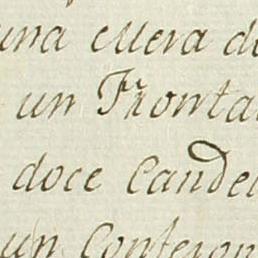 una cuera de
un Fronta
doce Cande
un Confeson